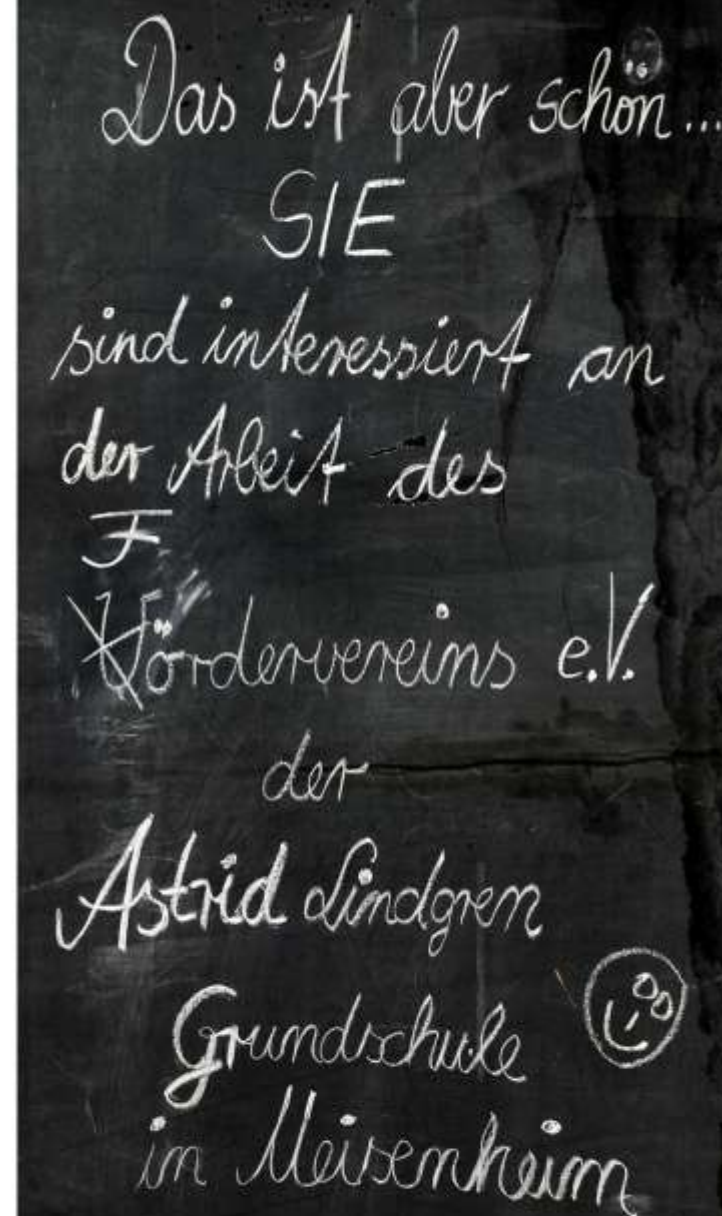 Das ist aber schön...
SIE
sind interessiert an
der Arbeit des
F
Vördervereins e.V.
der
Astrid Lindgren
Grundschule
in Meisenheim